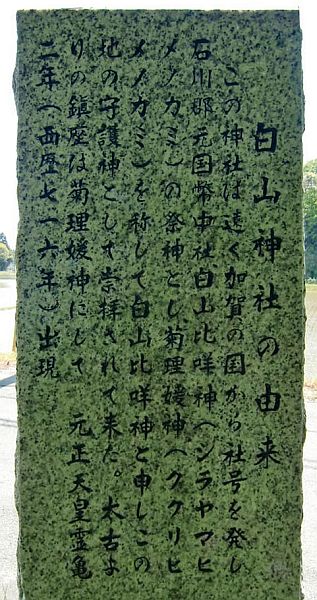 白山神社の由来
この神社は遠く加賀の国から社号を発し
石川郡元国幣中社白山比咩神(シラヤマヒ
メノカミ)の祭神とし菊理媛神(ククリヒ
メノカミ)を称して白山比咩神と申しこの
地の守護神として崇拝されて来た。太古よ
りの鎮座は菊理媛神にして 元正天皇霊亀
二年(西歴七一六年)出現